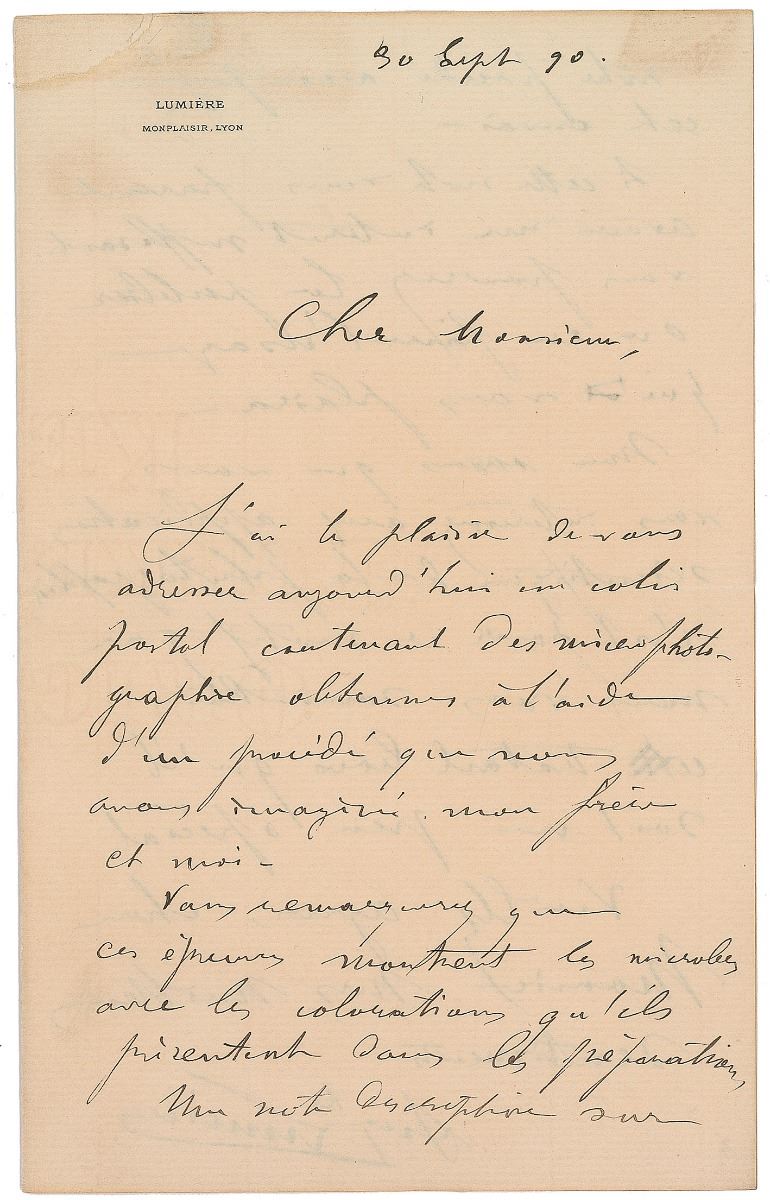 30 Sept 90.
LUMIÈRE
MONPLAISIR, LYON
Cher Monsieur,
J'ai le plaisir de vous
adresser aujourd'hui un colis
postal contenant des microphoto-
graphies obtenues à l'aide
d'un procédé que nous
avons imaginé mon frère
et moi -
Vous remarquerez que
ces épreuves montrent les microbes
avec les colorations qu'ils
présentent dans les préparations,
Une note descriptive sur